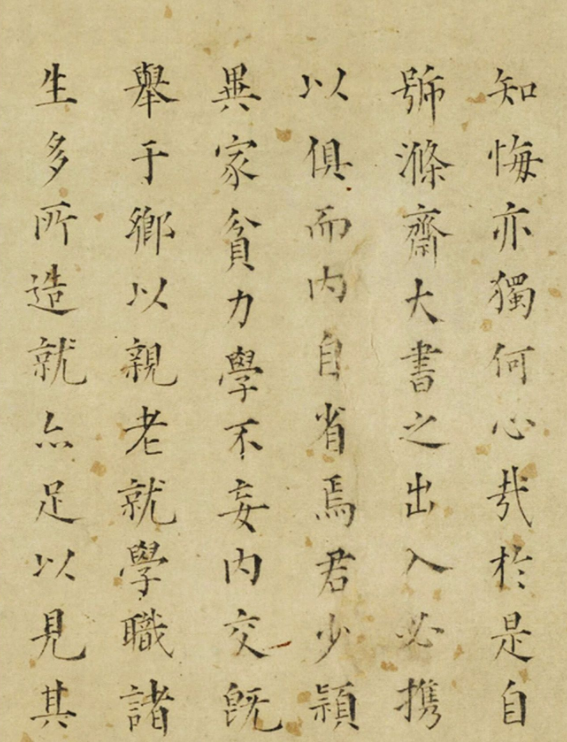 知悔亦獨何心哉於是自
號滌齋大書之出入必攜
以俱而內自省焉君少穎
異家貧力學不妄內交既
舉于鄉以親老就學職諸
生多所造就亦足以見其